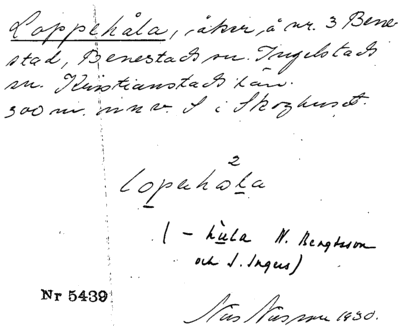 Loppehåla, åker, å nr. 3 Bene-
stad, Benestads sn. Ingelstads
hd. Kristianstads län.
300 m. nnv. S i Skoghuset.
2
lopehola
(– hula N. Bengtsson
och S. Ingers)
Nr 5439
Nils Nilsson 1930.